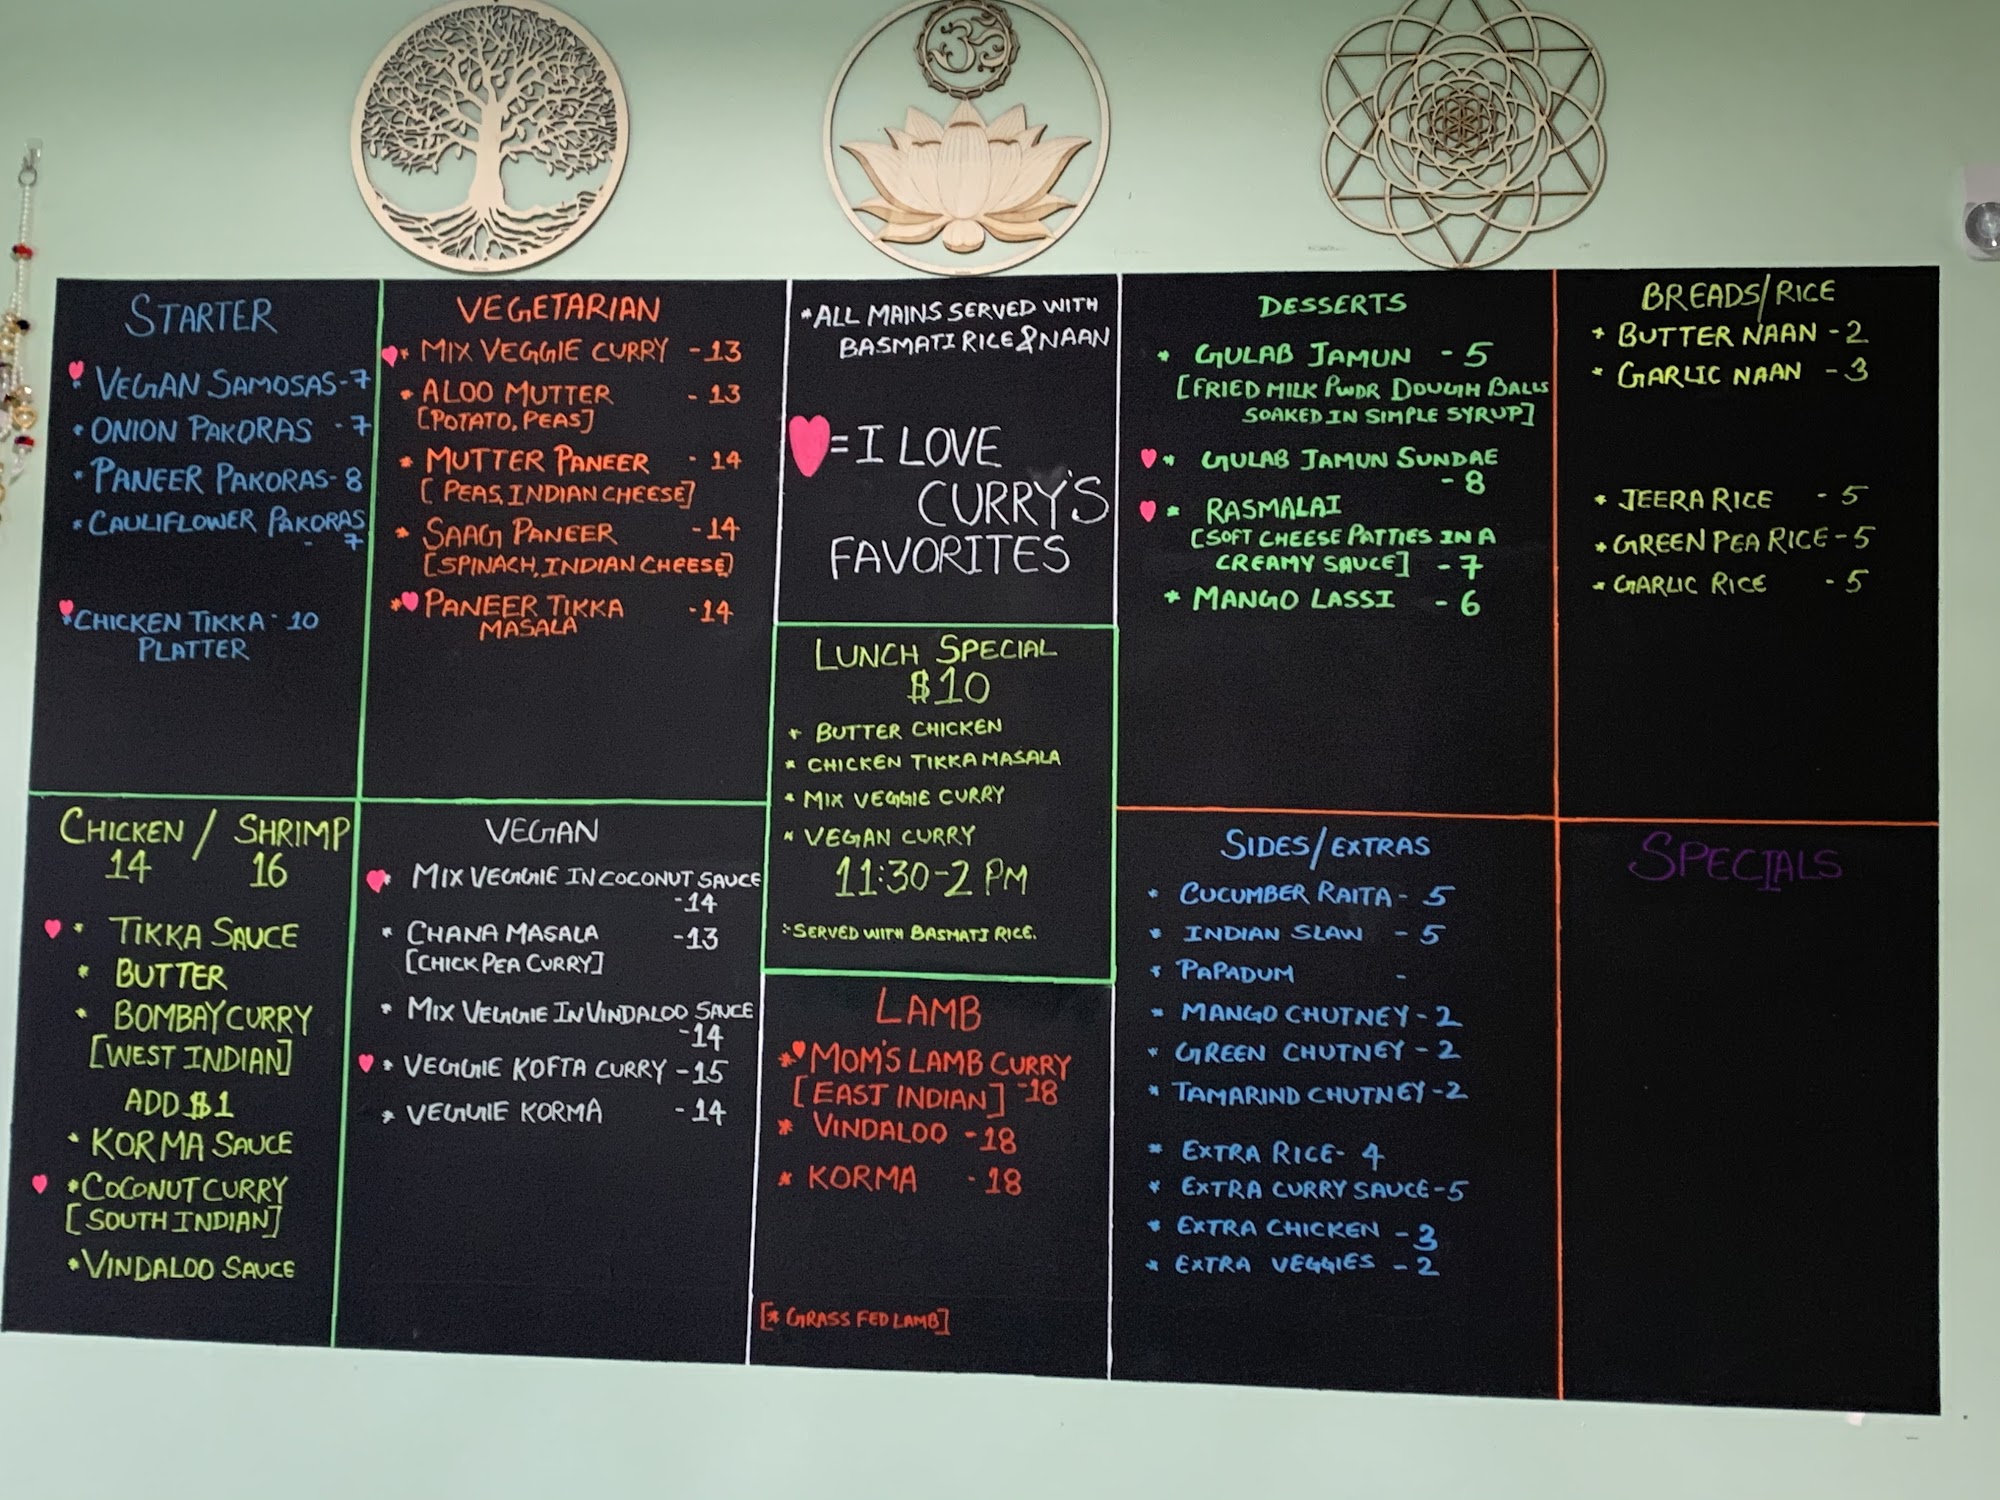 STARTER
* VEGAN SAMOSAS - 7
* ONION PAKORAS - 7
* PANEER PAKORAS - 8
* CAULIFLOWER PAKORAS
- 7
* CHICKEN TIKKA - 10
PLATTER
VEGETARIAN
* MIX VEGGIE CURRY - 13
* ALOO MUTTER - 13
[POTATO, PEAS]
* MUTTER PANEER - 14
[PEAS, INDIAN CHEESE]
* SAAG PANEER - 14
[SPINACH, INDIAN CHEESE]
* PANEER TIKKA - 14
MASALA
* ALL MAINS SERVED WITH
BASMATI RICE & NAAN
= I LOVE
CURRY'S
FAVORITES
LUNCH SPECIAL
$10
* BUTTER CHICKEN
* CHICKEN TIKKA MASALA
* MIX VEGGIE CURRY
* VEGAN CURRY
11:30-2 PM
* SERVED WITH BASMATI RICE.
DESSERTS
* GULAB JAMUN - 5
[FRIED MILK PWDR DOUGH BALLS
SOAKED IN SIMPLE SYRUP]
* GULAB JAMUN SUNDAE
- 8
* RASMALAI
[SOFT CHEESE PATTIES IN A
CREAMY SAUCE] - 7
* MANGO LASSI - 6
BREADS/RICE
* BUTTER NAAN - 2
* GARLIC NAAN - 3
* JEERA RICE - 5
* GREEN PEA RICE - 5
* GARLIC RICE - 5
CHICKEN / SHRIMP
14 16
* TIKKA SAUCE
* BUTTER
* BOMBAY CURRY
[WEST INDIAN]
ADD $1
* KORMA SAUCE
* COCONUT CURRY
[SOUTH INDIAN]
* VINDALOO SAUCE
VEGAN
* MIX VEGGIE IN COCONUT SAUCE
- 14
* CHANA MASALA - 13
[CHICK PEA CURRY]
* MIX VEGGIE IN VINDALOO SAUCE
- 14
* VEGGIE KOFTA CURRY - 15
* VEGGIE KORMA - 14
LAMB
* MOM'S LAMB CURRY
[EAST INDIAN] - 18
* VINDALOO - 18
* KORMA - 18
[* GRASS FED LAMB]
SIDES/EXTRAS
* CUCUMBER RAITA - 5
* INDIAN SLAW - 5
* PAPADUM -
* MANGO CHUTNEY - 2
* GREEN CHUTNEY - 2
* TAMARIND CHUTNEY - 2
* EXTRA RICE - 4
* EXTRA CURRY SAUCE - 5
* EXTRA CHICKEN - 3
* EXTRA VEGGIES - 2
SPECIALS